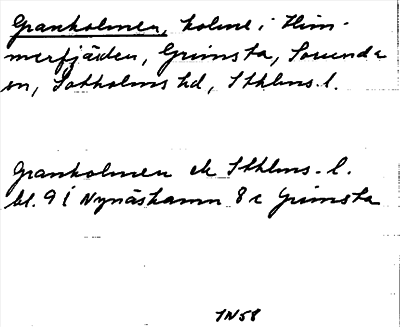 Granholmen, holme i Him-
merfjärden, Grimsta, Sorunda
sn, Sotholms hd, Sthlms. l.
Granholmen ek Sthlms. l.
bl. 9 i Nynäshamn 8 c Grimsta
IN58